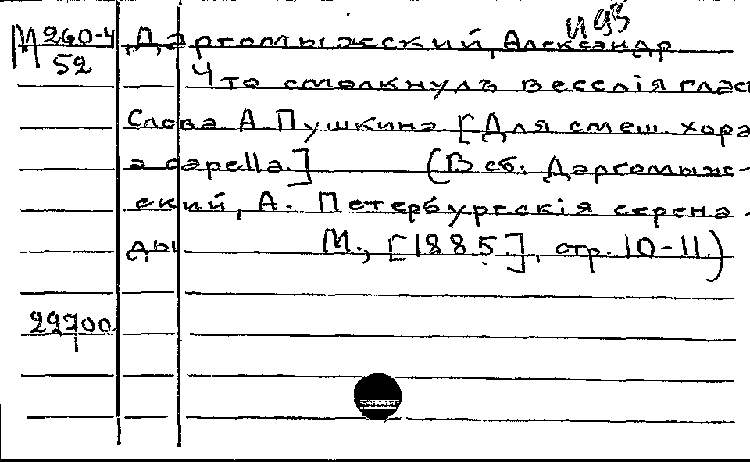 И93
М 260-4 Даргомыжский, Александр
52 Что смолкнулъ веселія глас
Слова А Пушкина [Для смеш. хора
a capella.] (В сб: Даргомыж-
ский, А. Петербургскія серена-
ды М., [1885], стр. 10-11)
29700